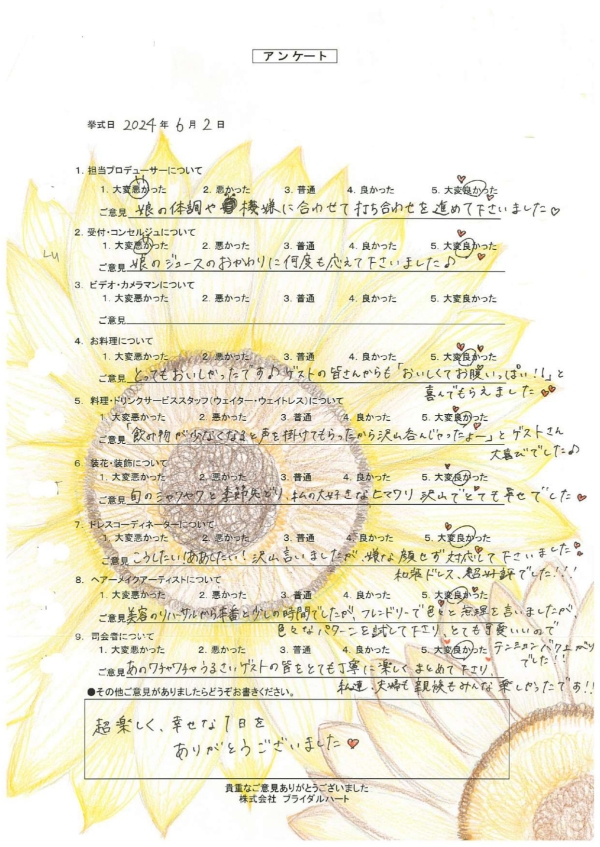 アンケート
挙式日 2024年 6月 2日
1. 担当プロデューサーについて
1. 大変悪かった 2. 悪かった 3. 普通 4. 良かった 5. 大変良かった
ご意見 娘の体調や機嫌に合わせて打ち合わせを進めて下さいました♡
2. 受付・コンセルジュについて
1. 大変悪かった 2. 悪かった 3. 普通 4. 良かった 5. 大変良かった
ご意見 娘のジュースのおかわりに何度も応えて下さいました♪
3. ビデオ・カメラマンについて
1. 大変悪かった 2. 悪かった 3. 普通 4. 良かった 5. 大変良かった
ご意見
4. お料理について
1. 大変悪かった 2. 悪かった 3. 普通 4. 良かった 5. 大変良かった
ご意見 とってもおいしかったです♪ゲストの皆さんからも「おいしくてお腹いっぱい!!」と
喜んでもらえました
5. 料理・ドリンクサービススタッフ(ウェイター・ウェイトレス)について
1. 大変悪かった 2. 悪かった 3. 普通 4. 良かった 5. 大変良かった
ご意見 「飲み物が少なくなると声を掛けてもらったから沢山呑んじゃったよー」とゲストさん
大喜びでした♪
6. 装花・装飾について
1. 大変悪かった 2. 悪かった 3. 普通 4. 良かった 5. 大変良かった
ご意見 旬のシャクヤクと季節先どり、私の大好きなヒマワリ沢山でとても幸せでした
7. ドレスコーディネーターについて
1. 大変悪かった 2. 悪かった 3. 普通 4. 良かった 5. 大変良かった
ご意見 こうしたいああしたい!沢山言いましたが、嫌な顔せず対応して下さいました
和装ドレス、超好評でした!!!
8. ヘアーメイクアーティストについて
1. 大変悪かった 2. 悪かった 3. 普通 4. 良かった 5. 大変良かった
ご意見 美容のリハーサルから本番と少しの時間でしたが、フレンドリーで色々と無理を言いましたが、
色々なパターンを試して下さり、とても可愛いいので
テンション バク上がりでした!!
9. 司会者について
1. 大変悪かった 2. 悪かった 3. 普通 4. 良かった 5. 大変良かった
ご意見 あのワチャワチャうるさいゲストの皆をとても丁寧に楽しくまとめて下さり、
私達、夫婦も親族もみんな楽しかったです!!
●その他ご意見がありましたらどうぞお書きください。
超楽しく、幸せな1日を
ありがとうございました
貴重なご意見ありがとうございました
株式会社 ブライダルハート